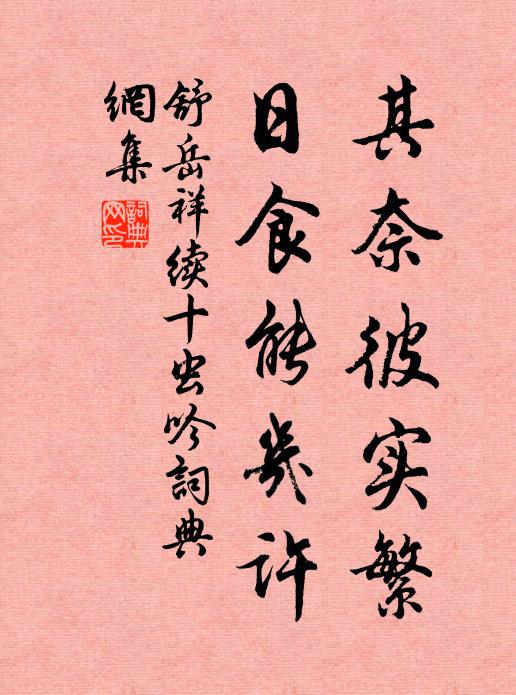 其奈彼实繁
日食能幾许
舒岳祥续十虫吟詞典
網集
詞典
网印